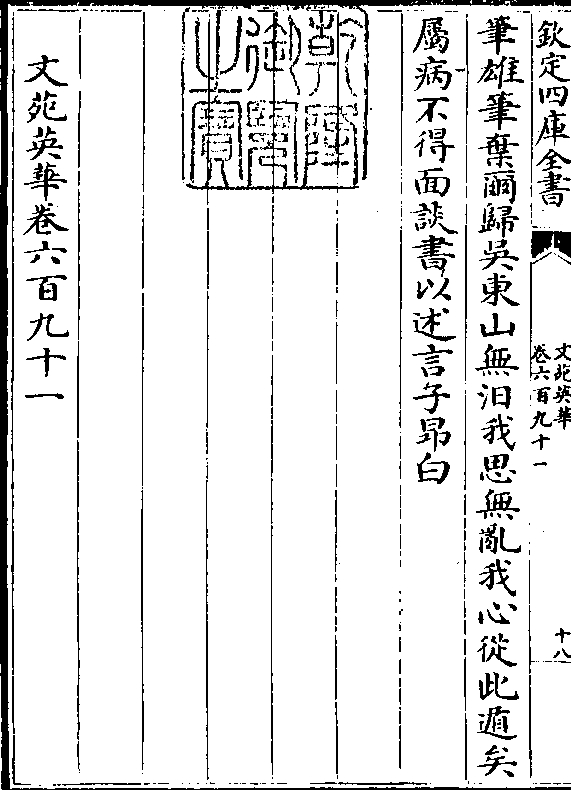 欽定四庫全書
文苑英華
卷六百九十一
十八
筆雄筆葉爾歸吳東山無汨我思無亂我心從此遁矣
屬病不得面談書以述言子昂白
乾隆
御覽
之寶
文苑英華卷六百九十一